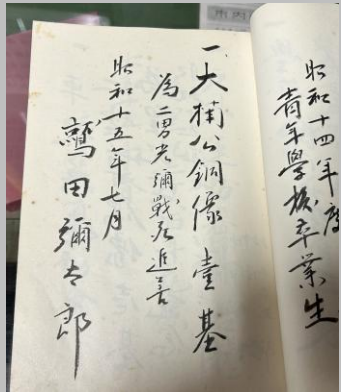 昭和十四年度
青年學校卒業生
一、大楠公銅像 壹基
為二男光彌戰死追善
昭和十五年七月
鷲田彌太郎